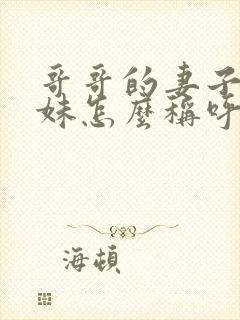 哥哥的妻子
妹怎麼稱呼
海頓